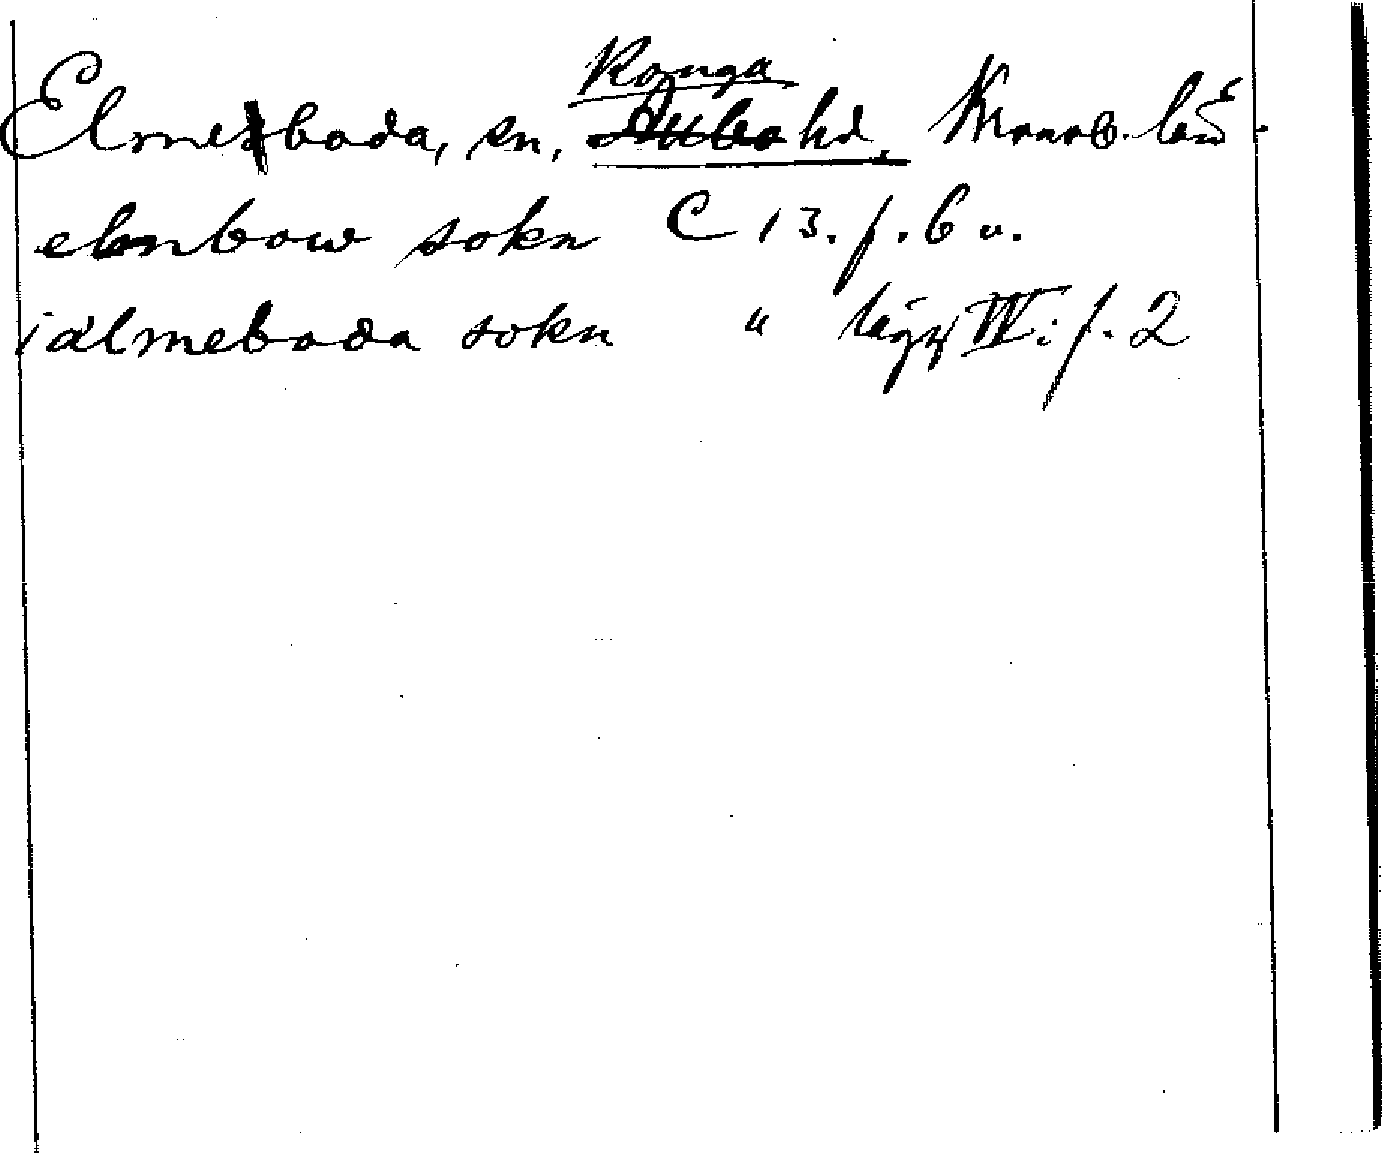 Konga
Elmeboda, sn, hd, Kronob. län.
elmbow sokn C 13. f. 6 v.
i ælmeboda sokn " lägg IV: f. 2